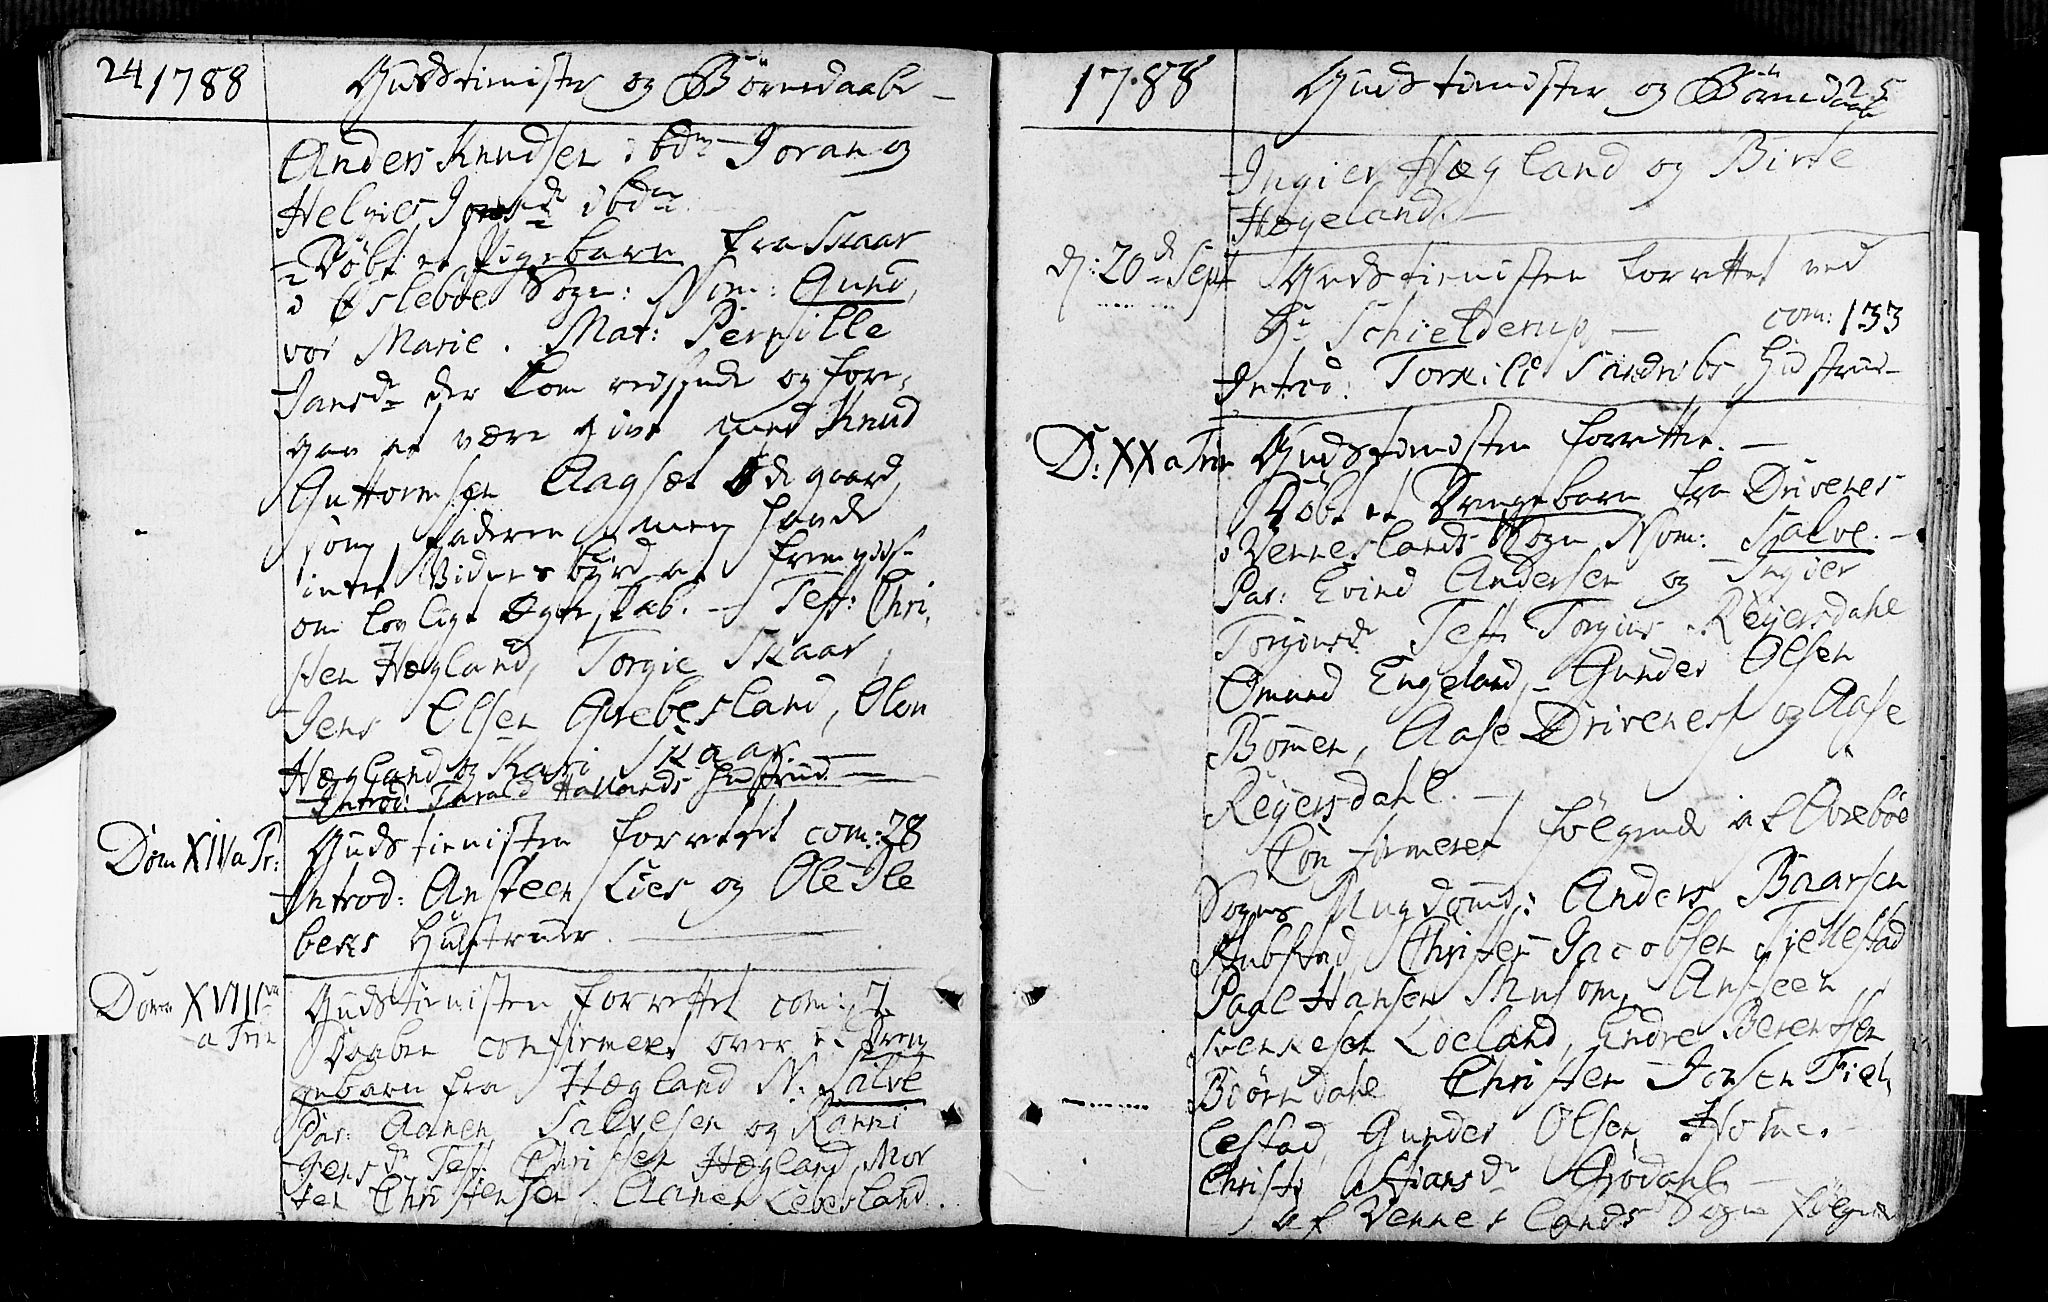 24 1788 Gudstienister og Börnedaab
Anders Knudsen ibdm Joran og
Helgier Jonsdr ibdm
Döbt et Pigebarn fra Skaar
i Öslebøe Sogn: Nom: Gund,
vor Marie. Mat: Pernille
Jansdr der kom reisende og fore,
gav at være givt med Knud
Guttormsen Aagsæt Ödegaard
som Faderen men havde
intet Vidnesbyrd at fremviise
om lovligt Ægteskab. Test: Chri,
sten Hægland, Torgie Skaar,
Jens Olsen Grebesland, Olou
Hægland og Kari Skaar.
Introd: Tarald Hallands Hustrue
Dom XIV a Tr: Gudstienisten forrettet com: 28
Introd: Ansteen Lies og Ole Ile
beks Hustruer.
Dom XVIII a Trin Gudstienisten forrettet com: 7
Daaben confirmeret over et Dren
gebarn fra Hægland N: Salve
Par: Aanen Salvesen og Ranni
Jensdr Test: Christen Hægland, Mor
ten Christensen. Aanen Lebesland.
1788 Gudstienister og Börnedaab 25
Ingier Hægland og Birte
Hægeland.
d: 20de Sept Gudstienisten forrettet ved
Hr Schielderup com: 133
Introd: Torkild Sandribs Hustrue
D: XX a Trin Gudstienisten forrettet.
Döbt et Drengebarn fra Drivenes
i Venneslands Sogn Nom: Salve.
Par: Evind Andersen og Ingier
Torjusdr Test Torgius Reyersdahl
Omund Engeland, Gunder Olsen
Bommen, Aase Drivenes og Aase
Reyersdahl.
Confirmeret fölgende af Övreböe
Sogns Ungdom: Anders Baarsen
Stubstad Christen Jacobsen Fjellestad
Paal Hansen Musom, Ansteen
Svenkesen Loeland, Endre Berentsen
Biörndahl Christen Jonsen Fiel,
lestad Gunder Olsen Homes
Christi Stiansdr Gröddahl
af Venneslands Sogn fölgende